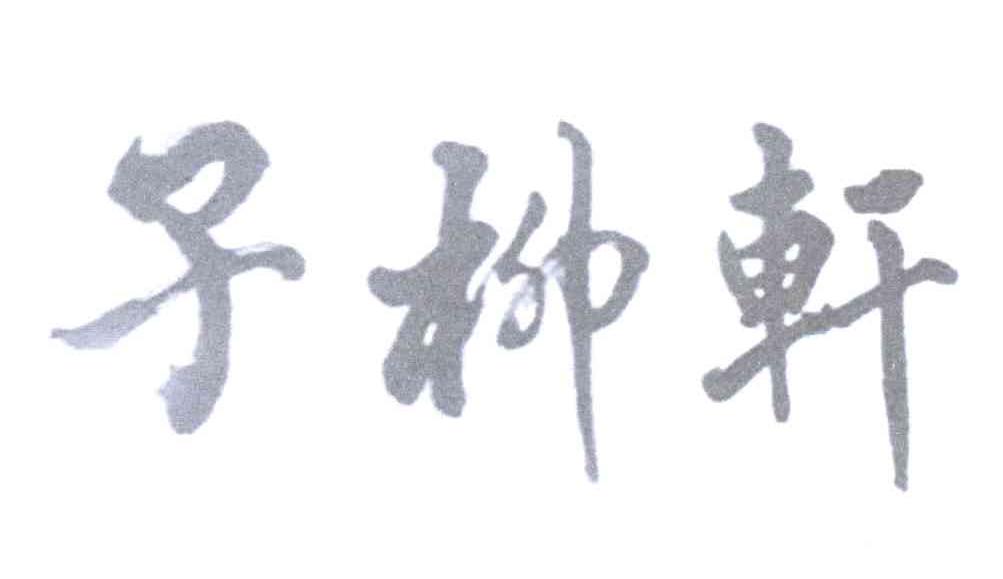 子柳軒